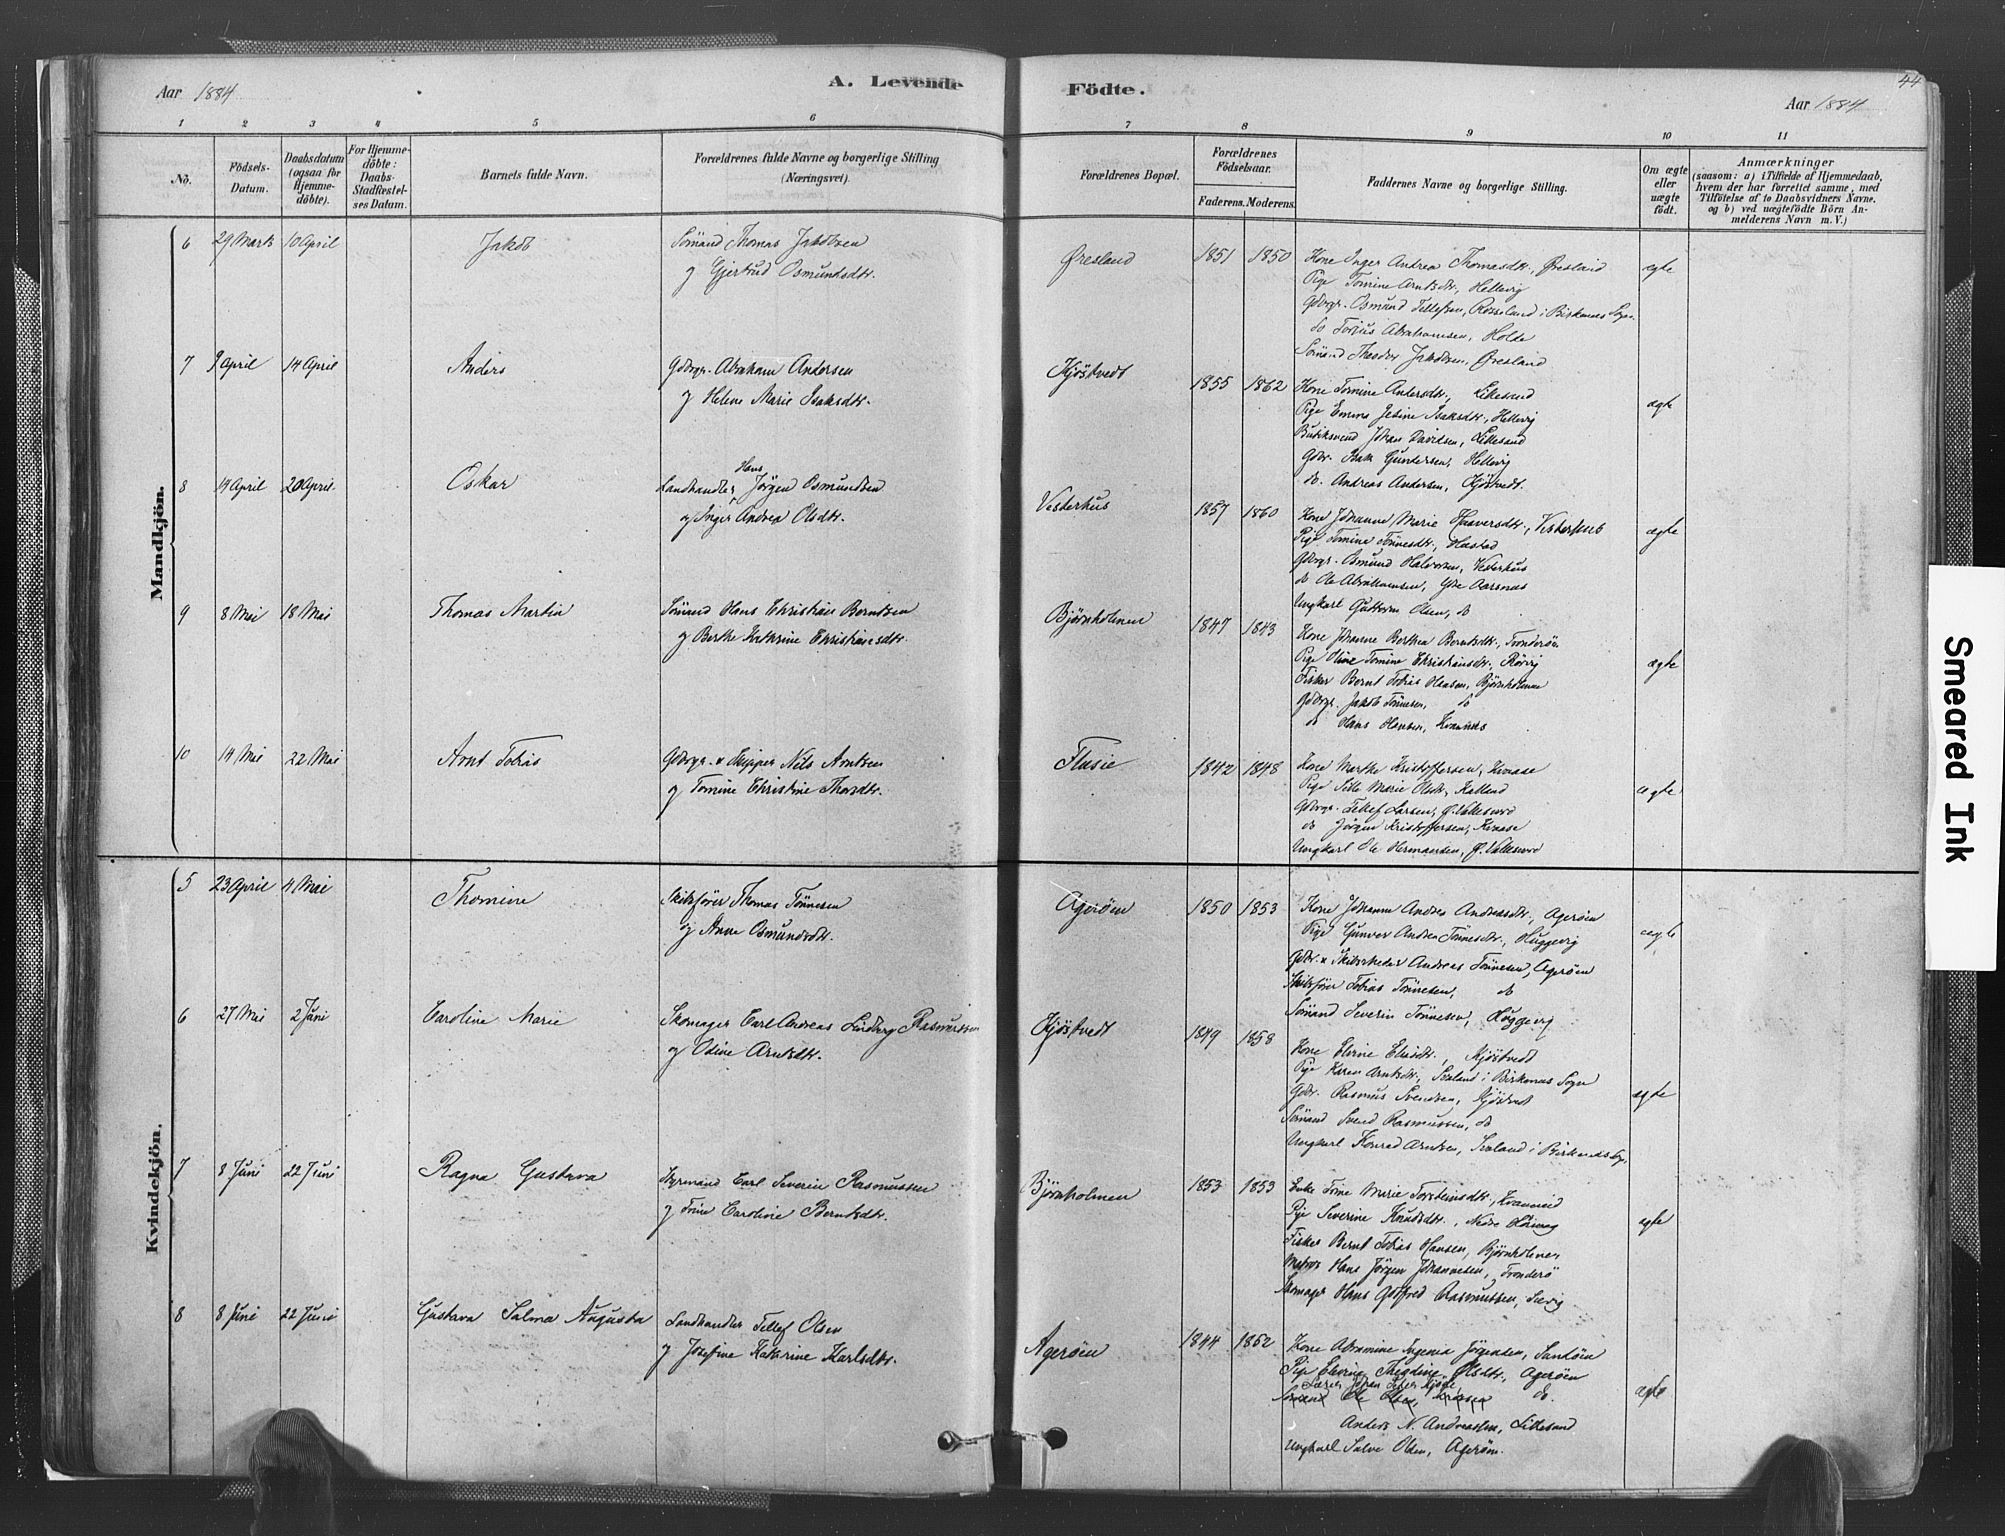 44
Aar 1884
A. Levende
Födte.
Aar 1884
1 2 3 4 5 6 7 8 9 10 11
No.
Födsels-
Datum.
Daabsdatum
(ogsaa for
Hjemme-
döbte).
For Hjemme-
döbte:
Daabs-
Stadfæstel-
ses Datum.
Barnets fulde Navn.
Forældrenes fulde Navne og borgerlige Stilling
(Næringsvei).
Forældrenes Bopæl.
Forældrenes
Födselsaar.
Faderens. Moderens.
Faddernes Navne og borgerlige Stilling.
Om ægte
eller
uægte
födt.
Anmærkninger
(saasom: a) i Tilfælde af Hjemmedaab,
hvem der har forrettet samme, med
Tilföielse af to Daabsvidners Navne.
og b) ved uægtefödte Börn An-
melderens Navn m. V.)
Mandkjön.
6 29 Marts 10 April Jakob
Sømand Thomas Jakobsen
og Gjertrud Osmundsdtr.
Øresland 1851 1850
Kone Inger Andrea Thomasdtr., Øresland
Pige Tomine Arntsdtr., Hellevig
Gdbrgr. Osmund Tellefsen, Røseland i Birkenes Sogn
do Torjus Abrahamsen, Holde
Sømand Theodor Jakobsen, Øresland
ægte
7 9 April 14 April Anders
Gdbrgr. Abraham Andersen
og Helene Marie Isaksdtr.
Kjøstvedt 1855 1862
Kone Tomine Andersdtr., Lillesand
Pige Emma Jesine Isaksdtr., Hellevig
Butiksvend Johan Davidsen, Lillesand
Gdbr. Isak Gundersen, Hellevig
do. Andreas Andersen, Kjøstvedt.
ægte
8 14 April 20 April Oskar
Hans
Landhandler Jørgen Osmundsen
og Inger Andrea Olsdtr.
Vesterhus 1857 1860
Kone Johanne Marie Haaversdtr., Vesterhus
Pige Tomine Tønnesdtr., Hæstad
Gdbrgr. Osmund Halvorsen, Vesterhus
do Ole Abrahamsen, Ytre Aarsnes
Ungkarl Guttorm Olsen, do
ægte
9 8 Mai 18 Mai Thomas Martin
Sømand Hans Christian Berntsen
og Berthe Kathrine Christiansdtr.
Bjørnholmen 1847 1843
Kone Johanne Berthea Berntsdtr., Tronderøe
Pige Oline Tomine Christiansdtr., Rørvig
Fisker Bernt Tobias Hansen, Bjørnholmen
Gdbrgr. Jakob Tønnesen, do
do Hans Hansen, Kvannes
ægte
10 14 Mai 22 Mai Arnt Tobias
Gdbrgr. & Skipper Nils Arntsen
og Tomine Christine Thorsdtr.
Flusie 1842 1848
Kone Marthe Kristoffersen, Kvaase
Pige Sille Marie Olsdtr., Kalland
Gdbrgr. Tellef Larsen, Ø. Vallesverd
do Jørgen Kristoffersen, Kvaase
Ungkarl Ole Hermansen, Ø. Vallesverd
ægte
Kvindekjön.
5 23 April 4 Mai Thomine
Skibsfører Thomas Tønnesen
og Anne Osmundsdtr.
Agerøen 1850 1853
Kone Johanne Andrea Andreasdtr., Agerøen
Pige Gunvor Andrea Tønnesdtr., Huggevig
Gdbr. & Skibsrheder Andreas Tønnesen, Agerøen
Skibsfører Tobias Tønnesen, do
Sømand Severin Tønnesen, Huggevig
ægte
6 27 Mai 2 Juni Caroline Marie
Skomager Carl Andreas Lindberg Rasmussen
og Odine Arntsdtr.
Kjøstvedt 1849 1858
Kone Elvine Eliasdtr., Kjøstvedt
Pige Karen Arntsdtr., Sæland i Birkenes Sogn
Gdbr. Rasmus Svendsen, Kjøstvedt
Sømand Svend Rasmussen, do
Ungkarl Konrad Arntsen, Sæland i Birkenes Sgn.
ægte
7 8 Juni 22 Juni Ragna Gustava
Hyrmand Carl Severin Rasmussen
og Trine Caroline Berntsdtr.
Bjørnholmen 1853 1853
Enke Tone Marie Torsteinsdtr., Kvanneid
Pige Severine Knudsdtr., Nedre
Fisker Bernt Tobias Hansen, Bjørnholmen
Matros Hans Jørgen Johannesen, Tronderø
Skomager Hans Gotfred Rasmussen, Sævig
ægte
8 8 Juni 22 Juni Gustava Salma Augusta
Landhandler Tellef Olsen
og Josefine Kathrine Karlsdtr.
Agerøen 1844 1852
Kone Abramine Ingenia Jørgensen, Sandøen
Pige Elevine Olsdtr., Agerøen
Lærer Johan
Sømand Ole Olsen, do.
Anders N. Andreassen, Lillesand
Ungkarl Salve Olsen, Agerøen.
ægte
Smeared Ink